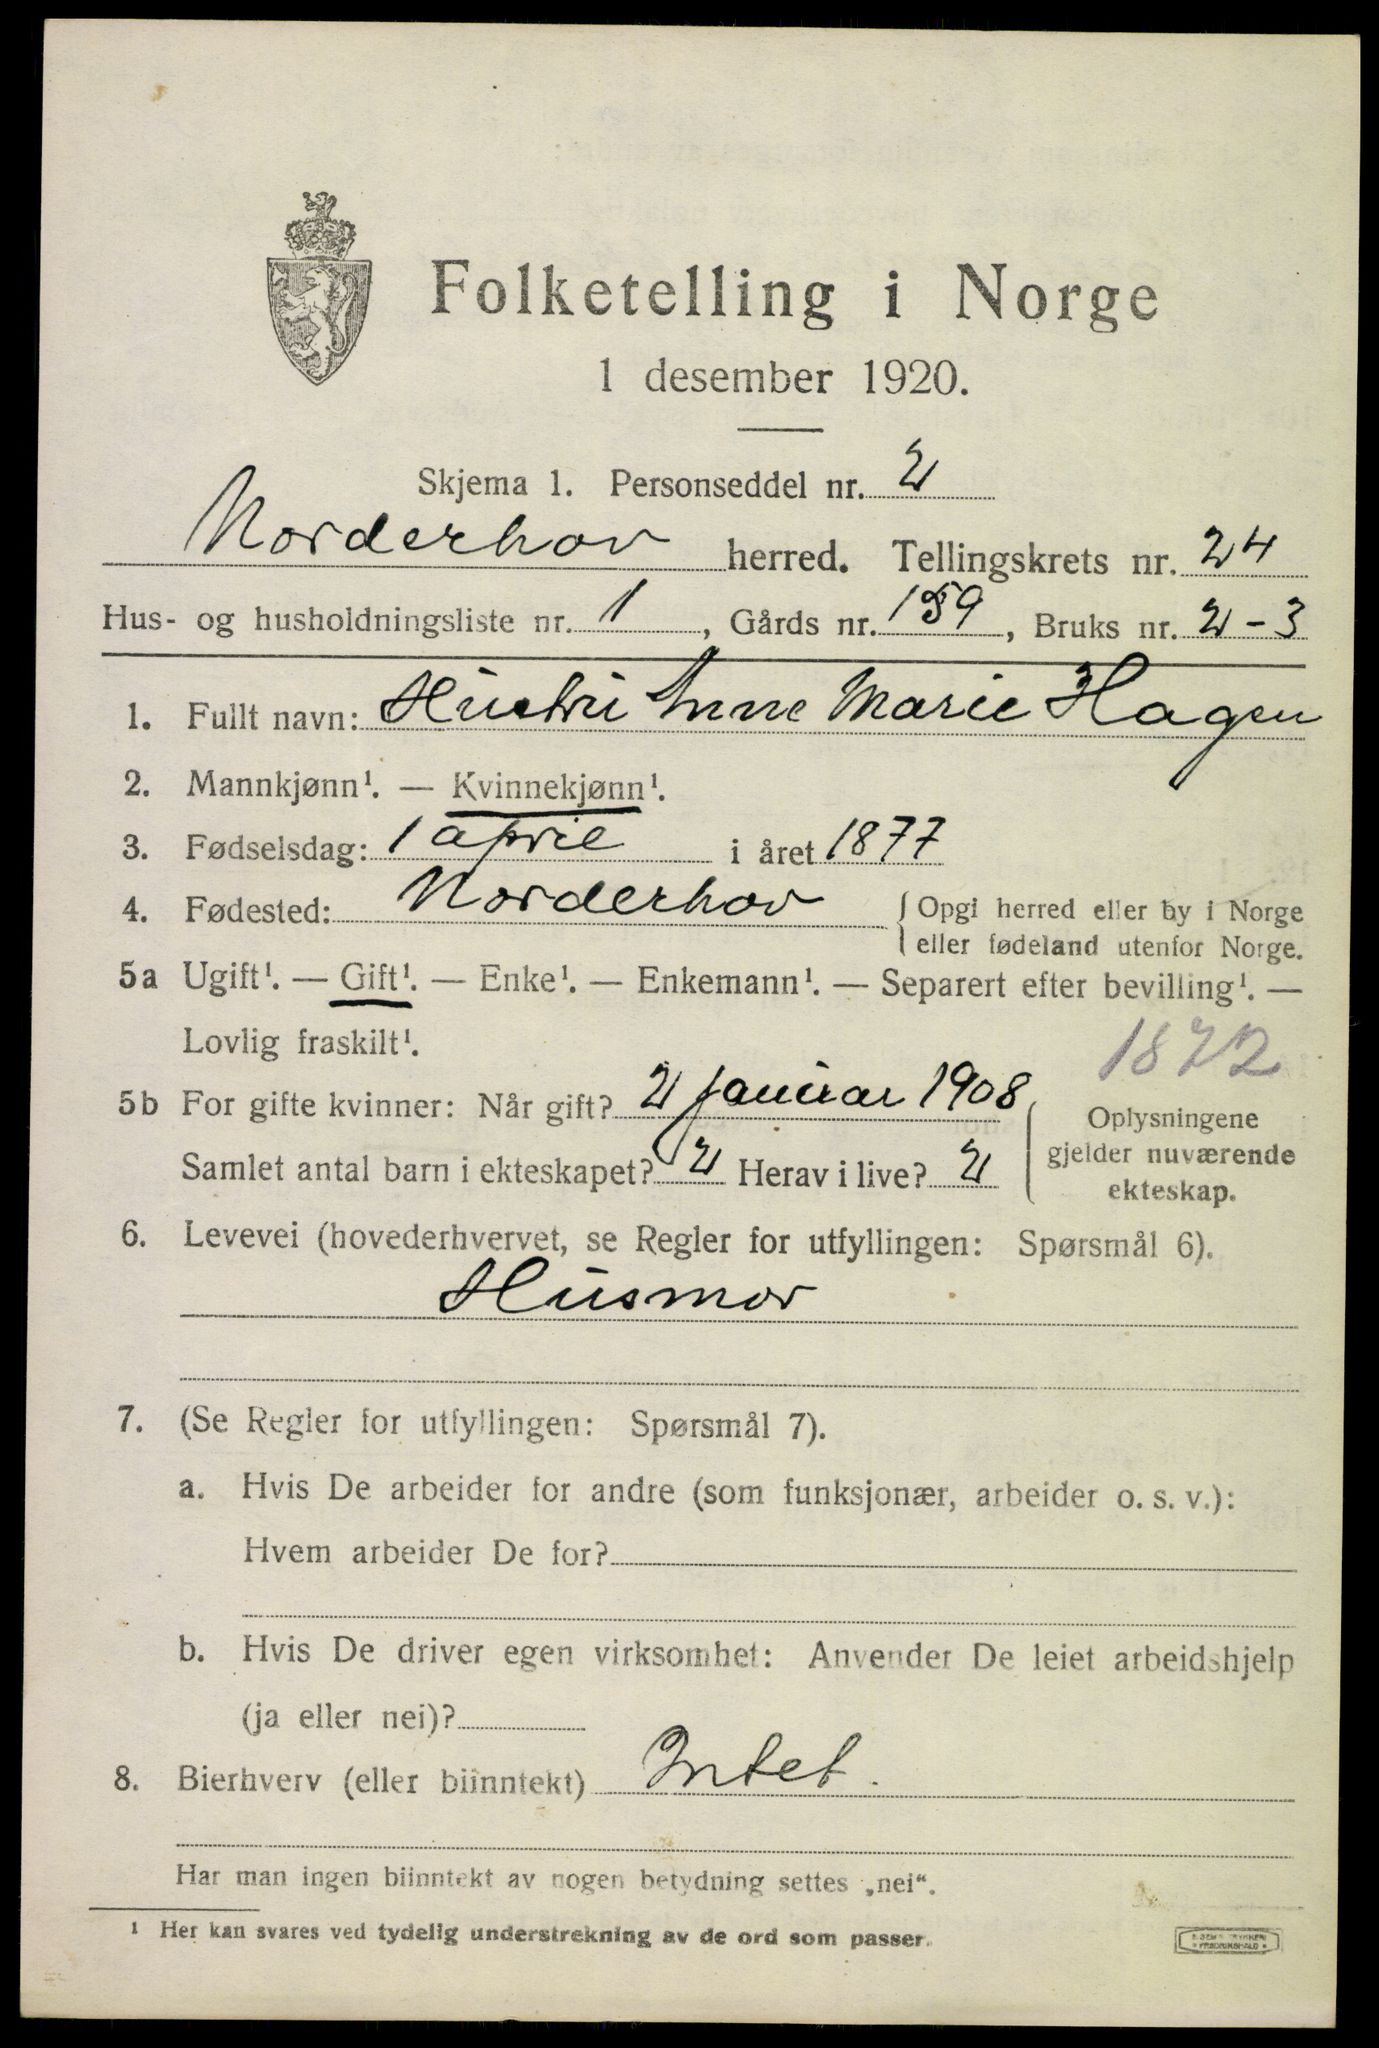 Folketelling i Norge
1 desember 1920.
Skjema 1. Personseddel nr. 2
Norderhov herred. Tellingskrets nr. 24
Hus- og husholdningsliste nr. 1, Gårds nr. 159, Bruks nr. 2-3
1. Fullt navn: Hustru Anne Marie Hagen
2. Mannkjønn¹. — Kvinnekjønn¹.
3. Fødselsdag: 1 april i året 1877
4. Fødested: Norderhov { Opgi herred eller by i Norge
eller fødeland utenfor Norge.
5a Ugift¹. — Gift¹. — Enke¹. — Enkemann¹. — Separert efter bevilling¹. —
Lovlig fraskilt¹.
1872
5b For gifte kvinner: Når gift? 2 januar 1908
Samlet antal barn i ekteskapet? 2 Herav i live? 2
Oplysningene
gjelder nuværende
ekteskap.
6. Levevei (hovederhvervet, se Regler for utfyllingen: Spørsmål 6).
Husmor
7. (Se Regler for utfyllingen: Spørsmål 7).
a. Hvis De arbeider for andre (som funksjonær, arbeider o. s. v.):
Hvem arbeider De for?
b. Hvis De driver egen virksomhet: Anvender De leiet arbeidshjelp
(ja eller nei)?
8. Bierhverv (eller biinntekt) Intet.
Har man ingen biinntekt av nogen betydning settes „nei“.
¹ Her kan svares ved tydelig understrekning av de ord som passer.
FREDRIKSHALD